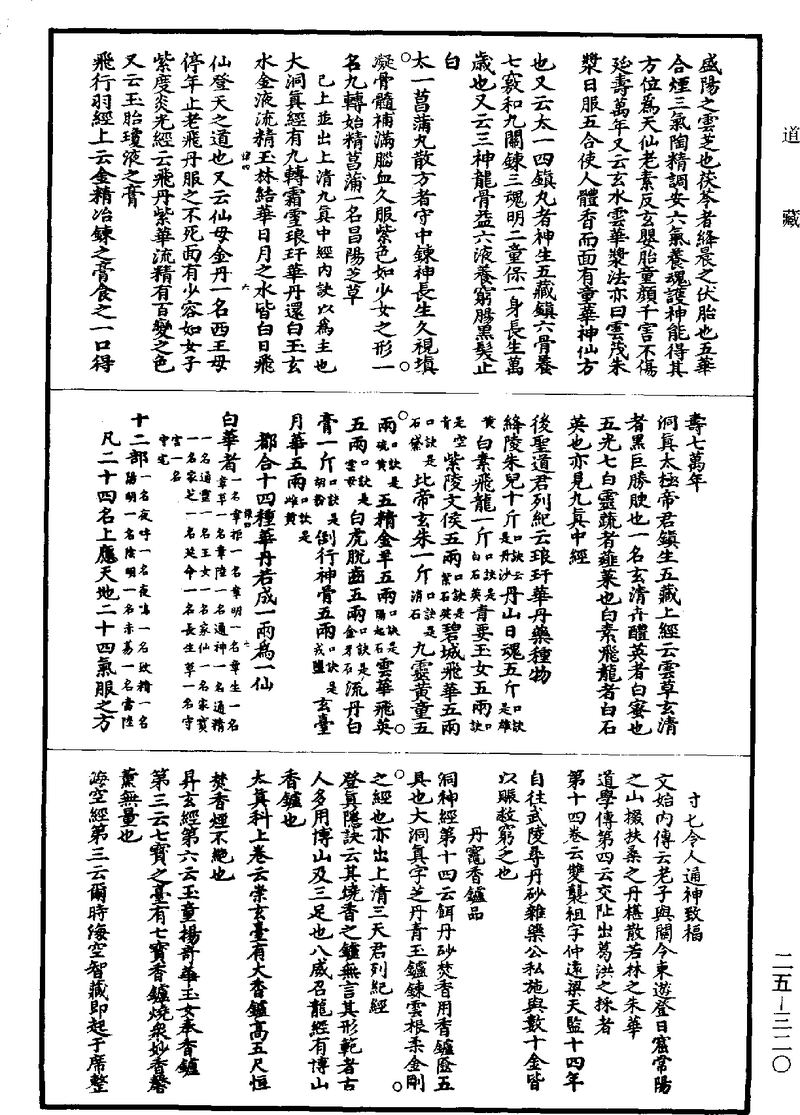 道藏
盛陽之雲芝也茯苓者絳晨之伏胎也五華
合煙三氣陶精調安六氣養魂護神能得其
方位為天仙老素反玄嬰胎童顏千害不傷
延壽萬年又云玄水雲華漿法亦曰雲茂朱
漿日服五合使人體香而面有童華神仙方
也又云太一四鎮九者神生五藏鎮六骨養
七竅和九關鍊三魂明二童保一身長生萬
歲也又云三神龍骨益六液養窮腸黑髮止
白
太一菖蒲九散方者守中鍊神長生久視填
凝骨髓補滿腦血久服紫色如少女之形一
名九轉始精菖蒲一名昌陽芝草
已上並出上清九真中經內訣以為主也
大洞真經有九轉霜雪琅玕華丹還白玉玄
水金液流精玉林結華日月之水皆白日飛
仙登天之道也又云仙母金丹一名西王母
停年止老飛丹服之不死面有少容如女子
紫度炎光經云飛丹紫華流精有百變之色
又云玉胎瓊液之膏
飛行羽經上云金精冶鍊之膏食之一口得
壽七萬年
洞真太極帝君鎮生五藏上經云雲草玄清
者黑巨勝腴也一名玄清卉醴英者白蜜也
五光七白靈蔬者薤菜也白素飛龍者白石
英也亦見九真中經
後聖道君列紀云琅玕華丹藥種物
絳陵朱兒十斤口訣云是丹沙丹山日魂五斤口訣是雄
黃白素飛龍一斤口訣是白石英青要玉女五兩口訣
是空青紫陵文侯五兩口訣是紫石英碧城飛華五兩
口訣是石黛比帝玄朱一斤口訣是消石九靈黃童五
兩口訣是硫黃五精金羊五兩口訣是陽起石雲華飛英
五兩口訣是雲母白虎脫齒五兩口訣是金牙石流丹白
膏一斤口訣是胡粉倒行神骨五兩口訣是戎鹽玄臺
月華五兩口訣是雌黃
都合十四種華丹若成一兩為一仙
白華者一名章拒一名章明一名章生一名
章草一名章陸一名通神一名通精
一名通靈一名玉女一名家仙一名家寶
一名家芝一名延命一名長生草一名守
宮一名守宅
十二部一名夜呼一名夜鳴一名啟精一名
陽明一名陰明一名赤葛一名當陸
凡二十四名上應天地二十四氣服之方
寸匕令人通神致福
文始內傳云老子與關令東遊登日窟常陽
之山掇扶桑之丹椹散若林之朱華
道學傳第四云交阯出葛洪之採者
第十四卷云雙襲祖字仲遠梁天監十四年
自往武陵尋丹砂雜藥公私施與數十金皆
以賑救窮乏也
丹竈香鑪品
洞神經第十四云餌丹砂焚香用香鑪廢五
具也大洞真字芝丹青玉鑪鍊雲根柔金剛
之經也亦出上清三天君列紀經
登真隱訣云其燒香之鑪無言其形範者古
人多用博山及三足也八威召龍經有博山
香鑪也
太真科上卷云崇玄臺有大香鑪高五尺恒
焚香煙不絕也
昇玄經第六云玉童楊哥華玉女奉香鑪
第三云七寶之臺有七寶香鑪燒眾妙香馨
薰無量也
海空經第三云爾時海空智藏即起于席整
二五－三二〇